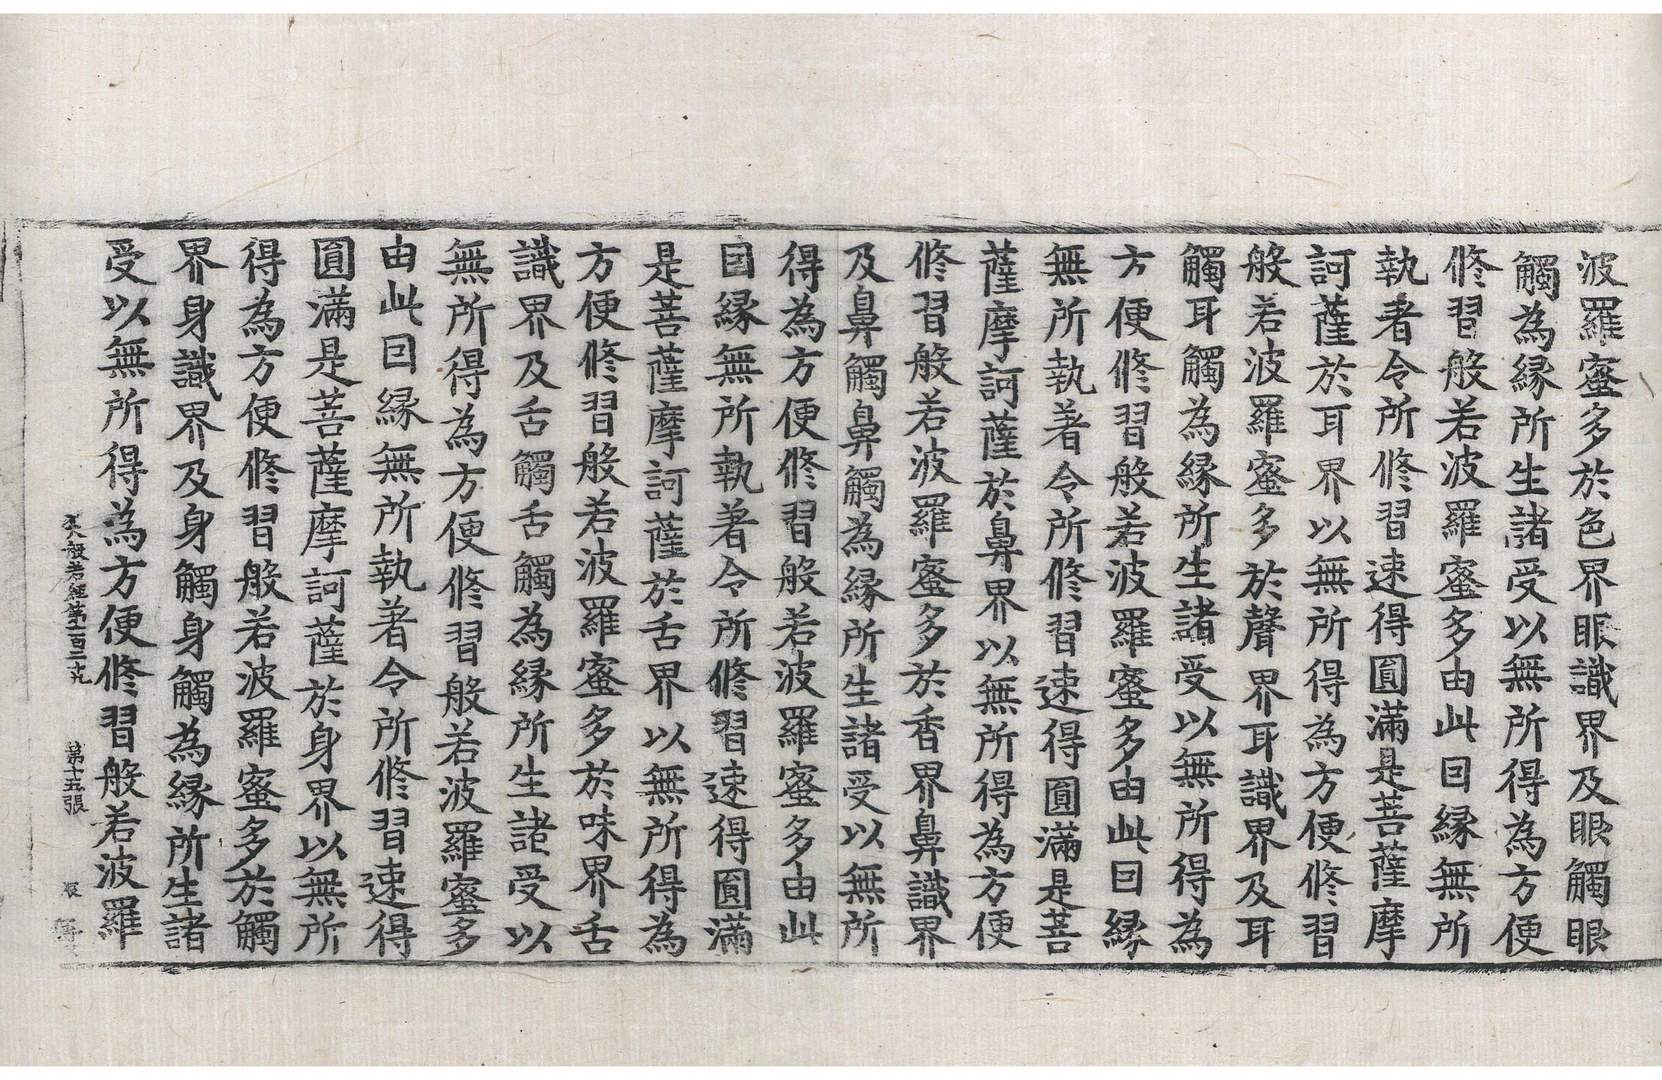 波羅蜜多於色界眼識界及眼觸眼
觸為縁所生諸受以無所得為方便
修習般若波羅蜜多由此因縁無所
執著令所修習速得圓滿是菩薩摩
訶薩於耳界以無所得為方便修習
般若波羅蜜多於聲界耳識界及耳
觸耳觸為縁所生諸受以無所得為
方便修習般若波羅蜜多由此因縁
無所執著令所修習速得圓滿是菩
薩摩訶薩於鼻界以無所得為方便
修習般若波羅蜜多於香界鼻識界
及鼻觸鼻觸為縁所生諸受以無所
得為方便修習般若波羅蜜多由此
因縁無所執著令所修習速得圓滿
是菩薩摩訶薩於舌界以無所得為
方便修習般若波羅蜜多於味界舌
識界及舌觸舌觸為縁所生諸受以
無所得為方便修習般若波羅蜜多
由此因縁無所執著令所修習速得
圓滿是菩薩摩訶薩於身界以無所
得為方便修習般若波羅蜜多於觸
界身識界及身觸身觸為縁所生諸
受以無所得為方便修習般若波羅
大般若經第一百二十九 第十五張